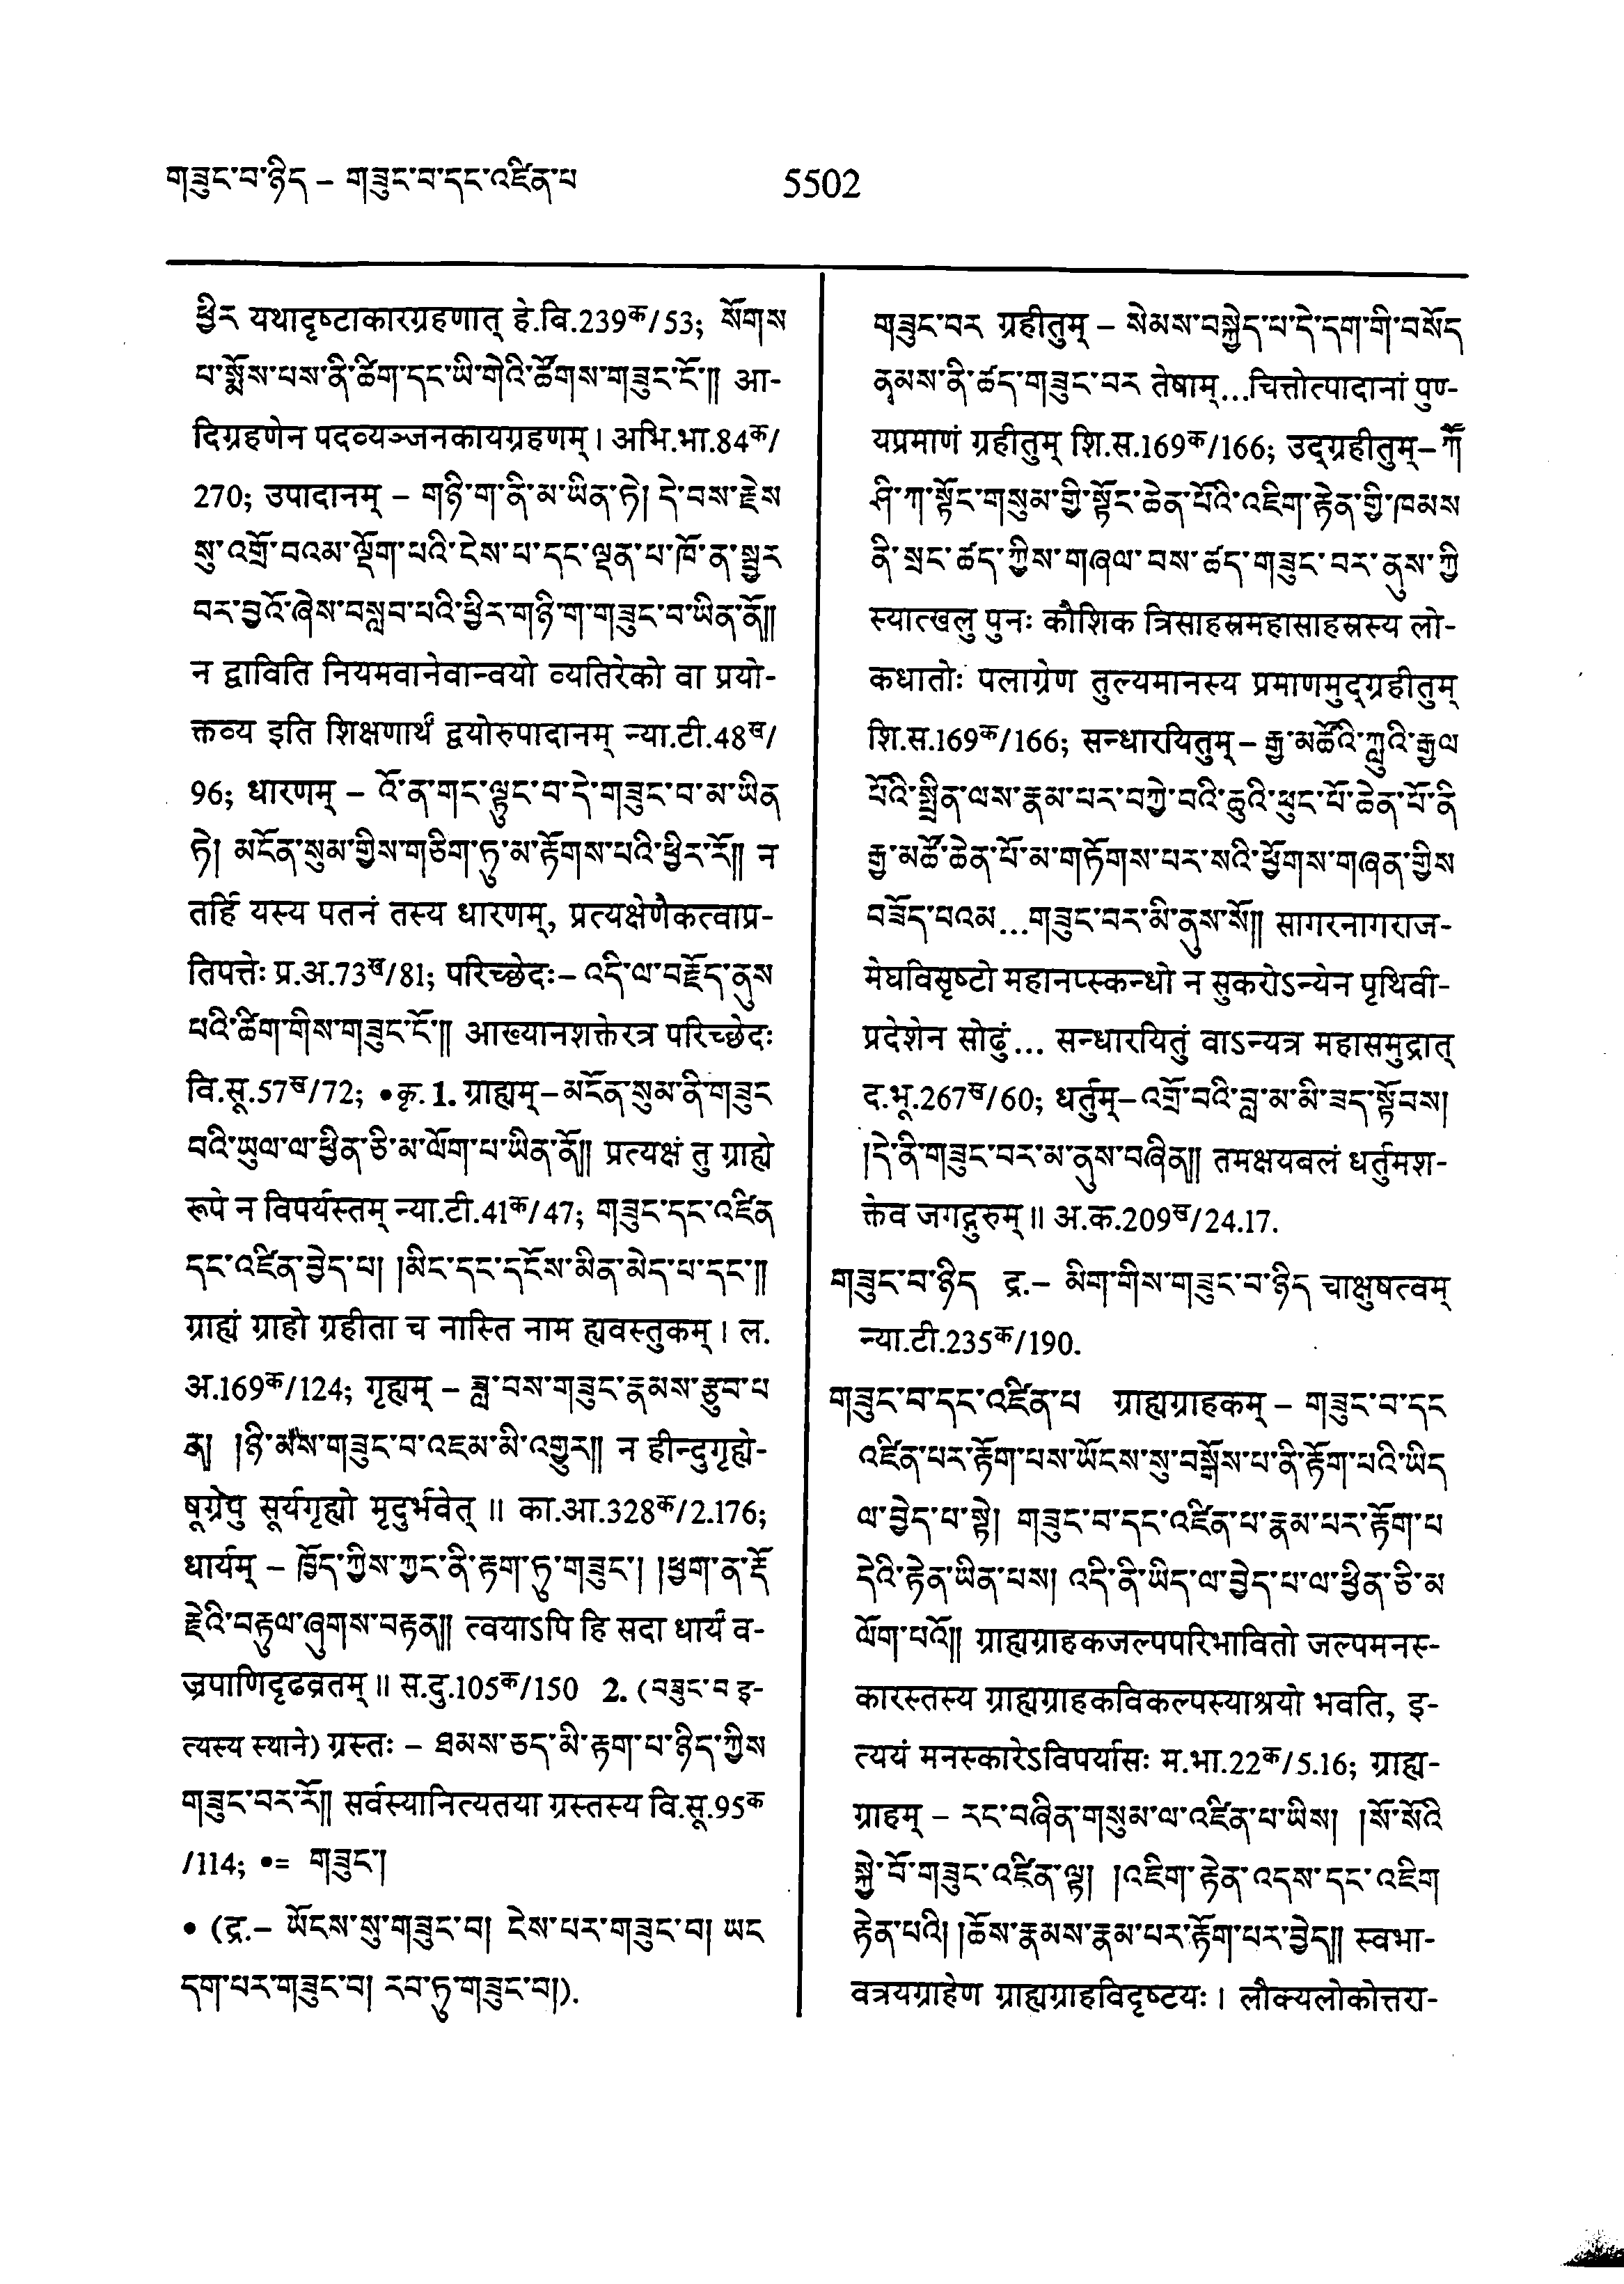 གཟུང་བ་ཉིད – གཟུང་བ་དང་འཛིན་པ 5502
ཕྱིར यथादृष्टाकारग्रहणात् हे.बि.239क/53; སོགས
པ་སྨོས་པས་ནི་ཚིག་དང་ཡི་གེའི་ཚོགས་གཟུང་ངོ་༎ आ-
दिग्रहणेन पदव्यञ्जनकायग्रहणम् । अभि.भा.84क/
270; उपादानम् – གཉི་ག་ནི་མ་ཡིན་ཏེ། དེ་བས་རྗེས
སུ་འགྲོ་བའམ་ལྡོག་པའི་ངེས་པ་དང་ལྡན་པ་ཁོ་ན་སྦྱར
བར་བྱའོ་ཞེས་བསླབ་པའི་ཕྱིར་གཉི་ག་གཟུང་བ་ཡིན་ནོ༎
न द्वाविति नियमवानेवान्वयो व्यतिरेको वा प्रयो-
क्तव्य इति शिक्षणार्थं द्वयोरुपादानम् न्या.टी.48ख/
96; धारणम् – འོ་ན་གང་ལྟུང་བ་དེ་གཟུང་བ་མ་ཡིན
ཏེ། མངོན་སུམ་གྱིས་གཅིག་ཏུ་མ་རྟོགས་པའི་ཕྱིར་རོ༎ न
तर्हि यस्य पतनं तस्य धारणम्, प्रत्यक्षेणैकत्वाप्र-
तिपत्तेः प्र.अ.73ख/81; परिच्छेदः– འདི་ལ་བརྗོད་ནུས
པའི་ཚིག་གིས་གཟུང་ངོ་༎ आख्यानशक्तेरत्र परिच्छेदः
वि.सू.57ख/72; •कृ. 1. ग्राह्यम्– མངོན་སུམ་ནི་གཟུང
བའི་ཡུལ་ལ་ཕྱིན་ཅི་མ་ལོག་པ་ཡིན་ནོ༎ प्रत्यक्षं तु ग्राह्ये
रूपे न विपर्यस्तम् न्या.टी.41क/47; གཟུང་དང་འཛིན
དང་འཛིན་བྱེད་པ། །མིང་དང་དངོས་མིན་མེད་པ་དང་༎
ग्राह्यं ग्राहो ग्रहीता च नास्ति नाम ह्यवस्तुकम् । ल.
अ.169क/124; गृह्यम् – ཟླ་བས་གཟུང་རྣམས་རྩུབ་པ
ན། །ཉི་མས་གཟུང་བ་འཇམ་མི་འགྱུར༎ न हीन्दुगृह्ये-
षूग्रेषु सूर्यगृह्यो मृदुर्भवेत् ॥ का.आ.328क/2.176;
धार्यम् – ཁྱོད་ཀྱིས་ཀྱང་ནི་རྟག་ཏུ་གཟུང་། །ཕྱག་ན་རྡོ
རྗེའི་བརྟུལ་ཞུགས་བརྟན༎ त्वयाऽपि हि सदा धार्यं व-
ज्रपाणिदृढव्रतम् ॥ स.दु.105क/150 2. (བཟུང་བ इ-
त्यस्य स्थाने) ग्रस्तः – ཐམས་ཅད་མི་རྟག་པ་ཉིད་ཀྱིས
གཟུང་བར་རོ༎ सर्वस्यानित्यतया ग्रस्तस्य वि.सू.95क
/114; •= གཟུང་།
• (द्र.– ཡོངས་སུ་གཟུང་བ། ངེས་པར་གཟུང་བ། ཡང
དག་པར་གཟུང་བ། རབ་ཏུ་གཟུང་བ།).
གཟུང་བར ग्रहीतुम् – སེམས་བསྐྱེད་པ་དེ་དག་གི་བསོད
ནམས་ནི་ཚད་གཟུང་བར तेषाम्...चित्तोत्पादानां पुण्-
यप्रमाणं ग्रहीतुम् शि.स.169क/166; उद्ग्रहीतुम्– ཀཽ
ཤི་ཀ་སྟོང་གསུམ་གྱི་སྟོང་ཆེན་པོའི་འཇིག་རྟེན་གྱི་ཁམས
ནི་སྲང་ཚད་ཀྱིས་གཞལ་བས་ཚད་གཟུང་བར་ནུས་ཀྱི
स्यात्खलु पुनः कौशिक त्रिसाहस्रमहासाहस्रस्य लो-
कधातोः पलाग्रेण तुल्यमानस्य प्रमाणमुद्ग्रहीतुम्
शि.स.169क/166; सन्धारयितुम् – རྒྱ་མཚོའི་ཀླུའི་རྒྱལ
པོའི་སྤྲིན་ལས་རྣམ་པར་བཀྱེ་བའི་ཆུའི་ཕུང་པོ་ཆེན་པོ་ནི
རྒྱ་མཚོ་ཆེན་པོ་མ་གཏོགས་པར་སའི་ཕྱོགས་གཞན་གྱིས
བཟོད་པའམ...གཟུང་བར་མི་ནུས་སོ༎ सागरनागराज-
मेघविसृष्टो महानप्स्कन्धो न सुकरोऽन्येन पृथिवी-
प्रदेशेन सोढुं... सन्धारयितुं वाऽन्यत्र महासमुद्रात्
द.भू.267ख/60; धर्तुम्– འགྲོ་བའི་བླ་མ་མི་ཟད་སྟོབས།
།དེ་ནི་གཟུང་བར་མ་ནུས་བཞིན༎ तमक्षयबलं धर्तुमश-
क्तेव जगद्गुरुम् ॥ अ.क.209ख/24.17.
གཟུང་བ་ཉིད द्र.– མིག་གིས་གཟུང་བ་ཉིད चाक्षुषत्वम्
न्या.टी.235क/190.
གཟུང་བ་དང་འཛིན་པ ग्राह्यग्राहकम् – གཟུང་བ་དང
འཛིན་པར་རྟོག་པས་ཡོངས་སུ་བསྒོས་པ་ནི་རྟོག་པའི་ཡིད
ལ་བྱེད་པ་སྟེ། གཟུང་བ་དང་འཛིན་པ་རྣམ་པར་རྟོག་པ
དེའི་རྟེན་ཡིན་པས། འདི་ནི་ཡིད་ལ་བྱེད་པ་ལ་ཕྱིན་ཅི་མ
ལོག་པའོ༎ ग्राह्यग्राहकजल्पपरिभावितो जल्पमनस्-
कारस्तस्य ग्राह्यग्राहकविकल्पस्याश्रयो भवति, इ-
त्ययं मनस्कारेऽविपर्यासः म.भा.22क/5.16; ग्राह्य-
ग्राहम् – རང་བཞིན་གསུམ་ལ་འཛིན་པ་ཡིས། །སོ་སོའི
སྐྱེ་བོ་གཟུང་འཛིན་ལྟ། །འཇིག་རྟེན་འདས་དང་འཇིག
རྟེན་པའི། །ཆོས་རྣམས་རྣམ་པར་རྟོག་པར་བྱེད༎ स्वभा-
वत्रयग्राहेण ग्राह्यग्राहविदृष्टयः । लौक्यलोकोत्तरा-